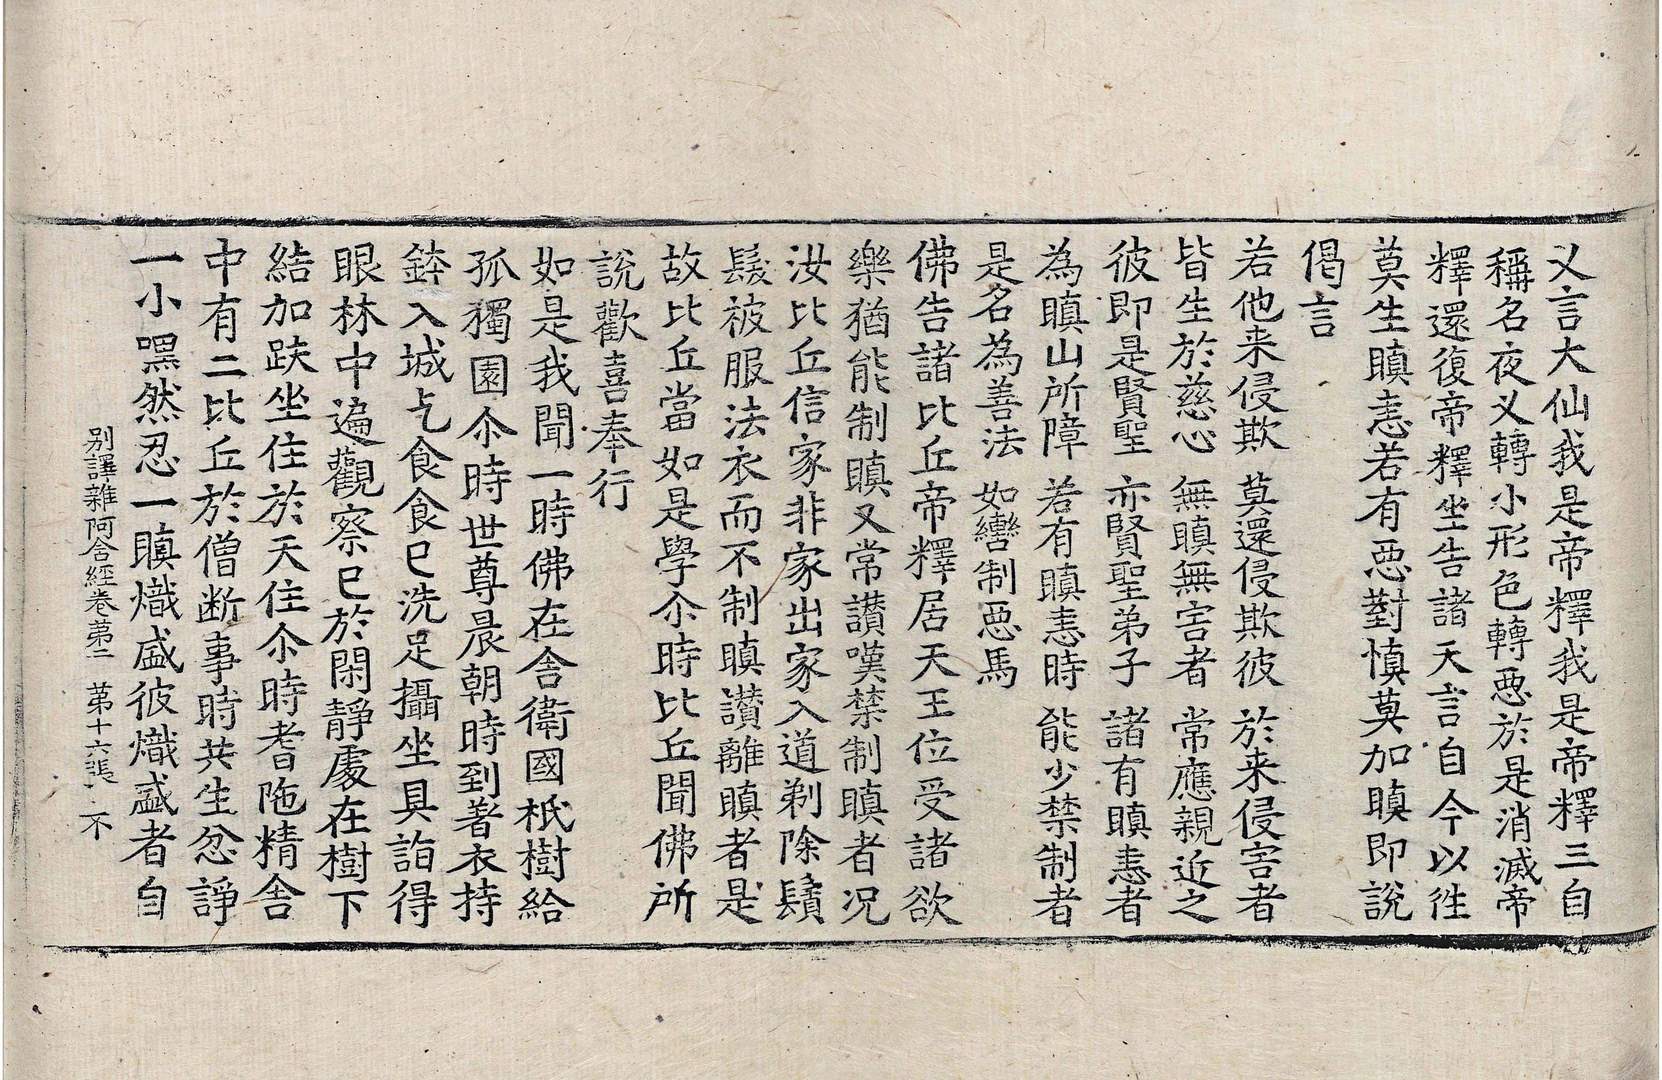 又言大仙我是帝釋我是帝釋三自
稱名夜叉轉小形色轉惡於是消滅帝
釋還復帝釋坐告諸天言自今以往
莫生瞋恚若有惡對慎莫加瞋即說
偈言
若他来侵欺　莫還侵欺彼　於来侵害者
皆生於慈心　無瞋無害者　常應親近之
彼即是賢聖　亦賢聖弟子　諸有瞋恚者
為瞋山所障　若有瞋恚時　能少禁制者
是名為善法　如轡制惡馬
佛告諸比丘帝釋居天王位受諸欲
樂猶能制瞋又常讃嘆禁制瞋者况
汝比丘信家非家出家入道剃除鬚
髮被服法衣而不制瞋讃離瞋者是
故比丘當如是學尒時比丘聞佛所
說歡喜奉行
如是我聞一時佛在舍衛國祇樹給
孤獨園尒時世尊晨朝時到著衣持
鉢入城乞食食已洗足攝坐具詣得
眼林中遍觀察已於閑靜處在樹下
結加趺坐住於天住尒時耆陁精舍
中有二比丘於僧断事時共生忿諍
一小嘿然忍一瞋熾盛彼熾盛者自
別譯雜阿含經卷第二　第十六張　不